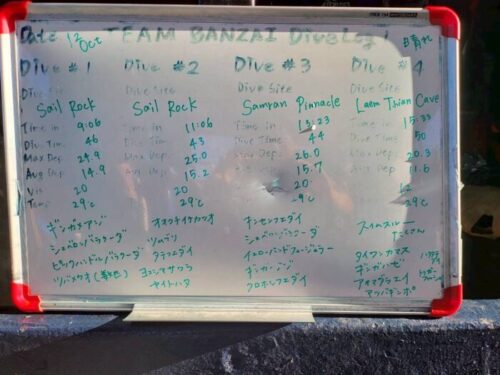 Date 12 Oct TEAM BANZAI DiveLog! 晴れ
Dive #1 Dive #2 Dive #3 Dive #4
Dive Site Dive Site Dive Site
Sail Rock Sail Rock Samran Pinnacle Laem Thian Cave
Time in 9:06 Time in 11:06 Time in 13:23 Time in 15:33
Dive Time 46 Dive Time 43 Dive Time 44 Dive Time 50
Max Dep. 24.9 Max Dep. 25.0 Max Dep. 26.0 Max Dep. 20.3
Avg Dep. 14.9 Avg Dep. 15.2 Avg Dep. 15.7 Avg Dep. 11.6
Vis 20 20 20 12
Temp 29℃ 29℃ 29℃ 29℃
ギンガメアジ オオクチイケカツオ キンセンフエダイ スイムスルー
シェブロンバラクーダ ツムブリ シェブロンバラクーダ たくさん
ピックハンドルバラクーダ タテフエダイ イエローバンドフュージョラー タイワンカマス
ツバメウオ ヨコシマサワラ ギンガメアジ ギンガハゼ
ヤイトハタ クロホシフエダイ アオマダラエイ